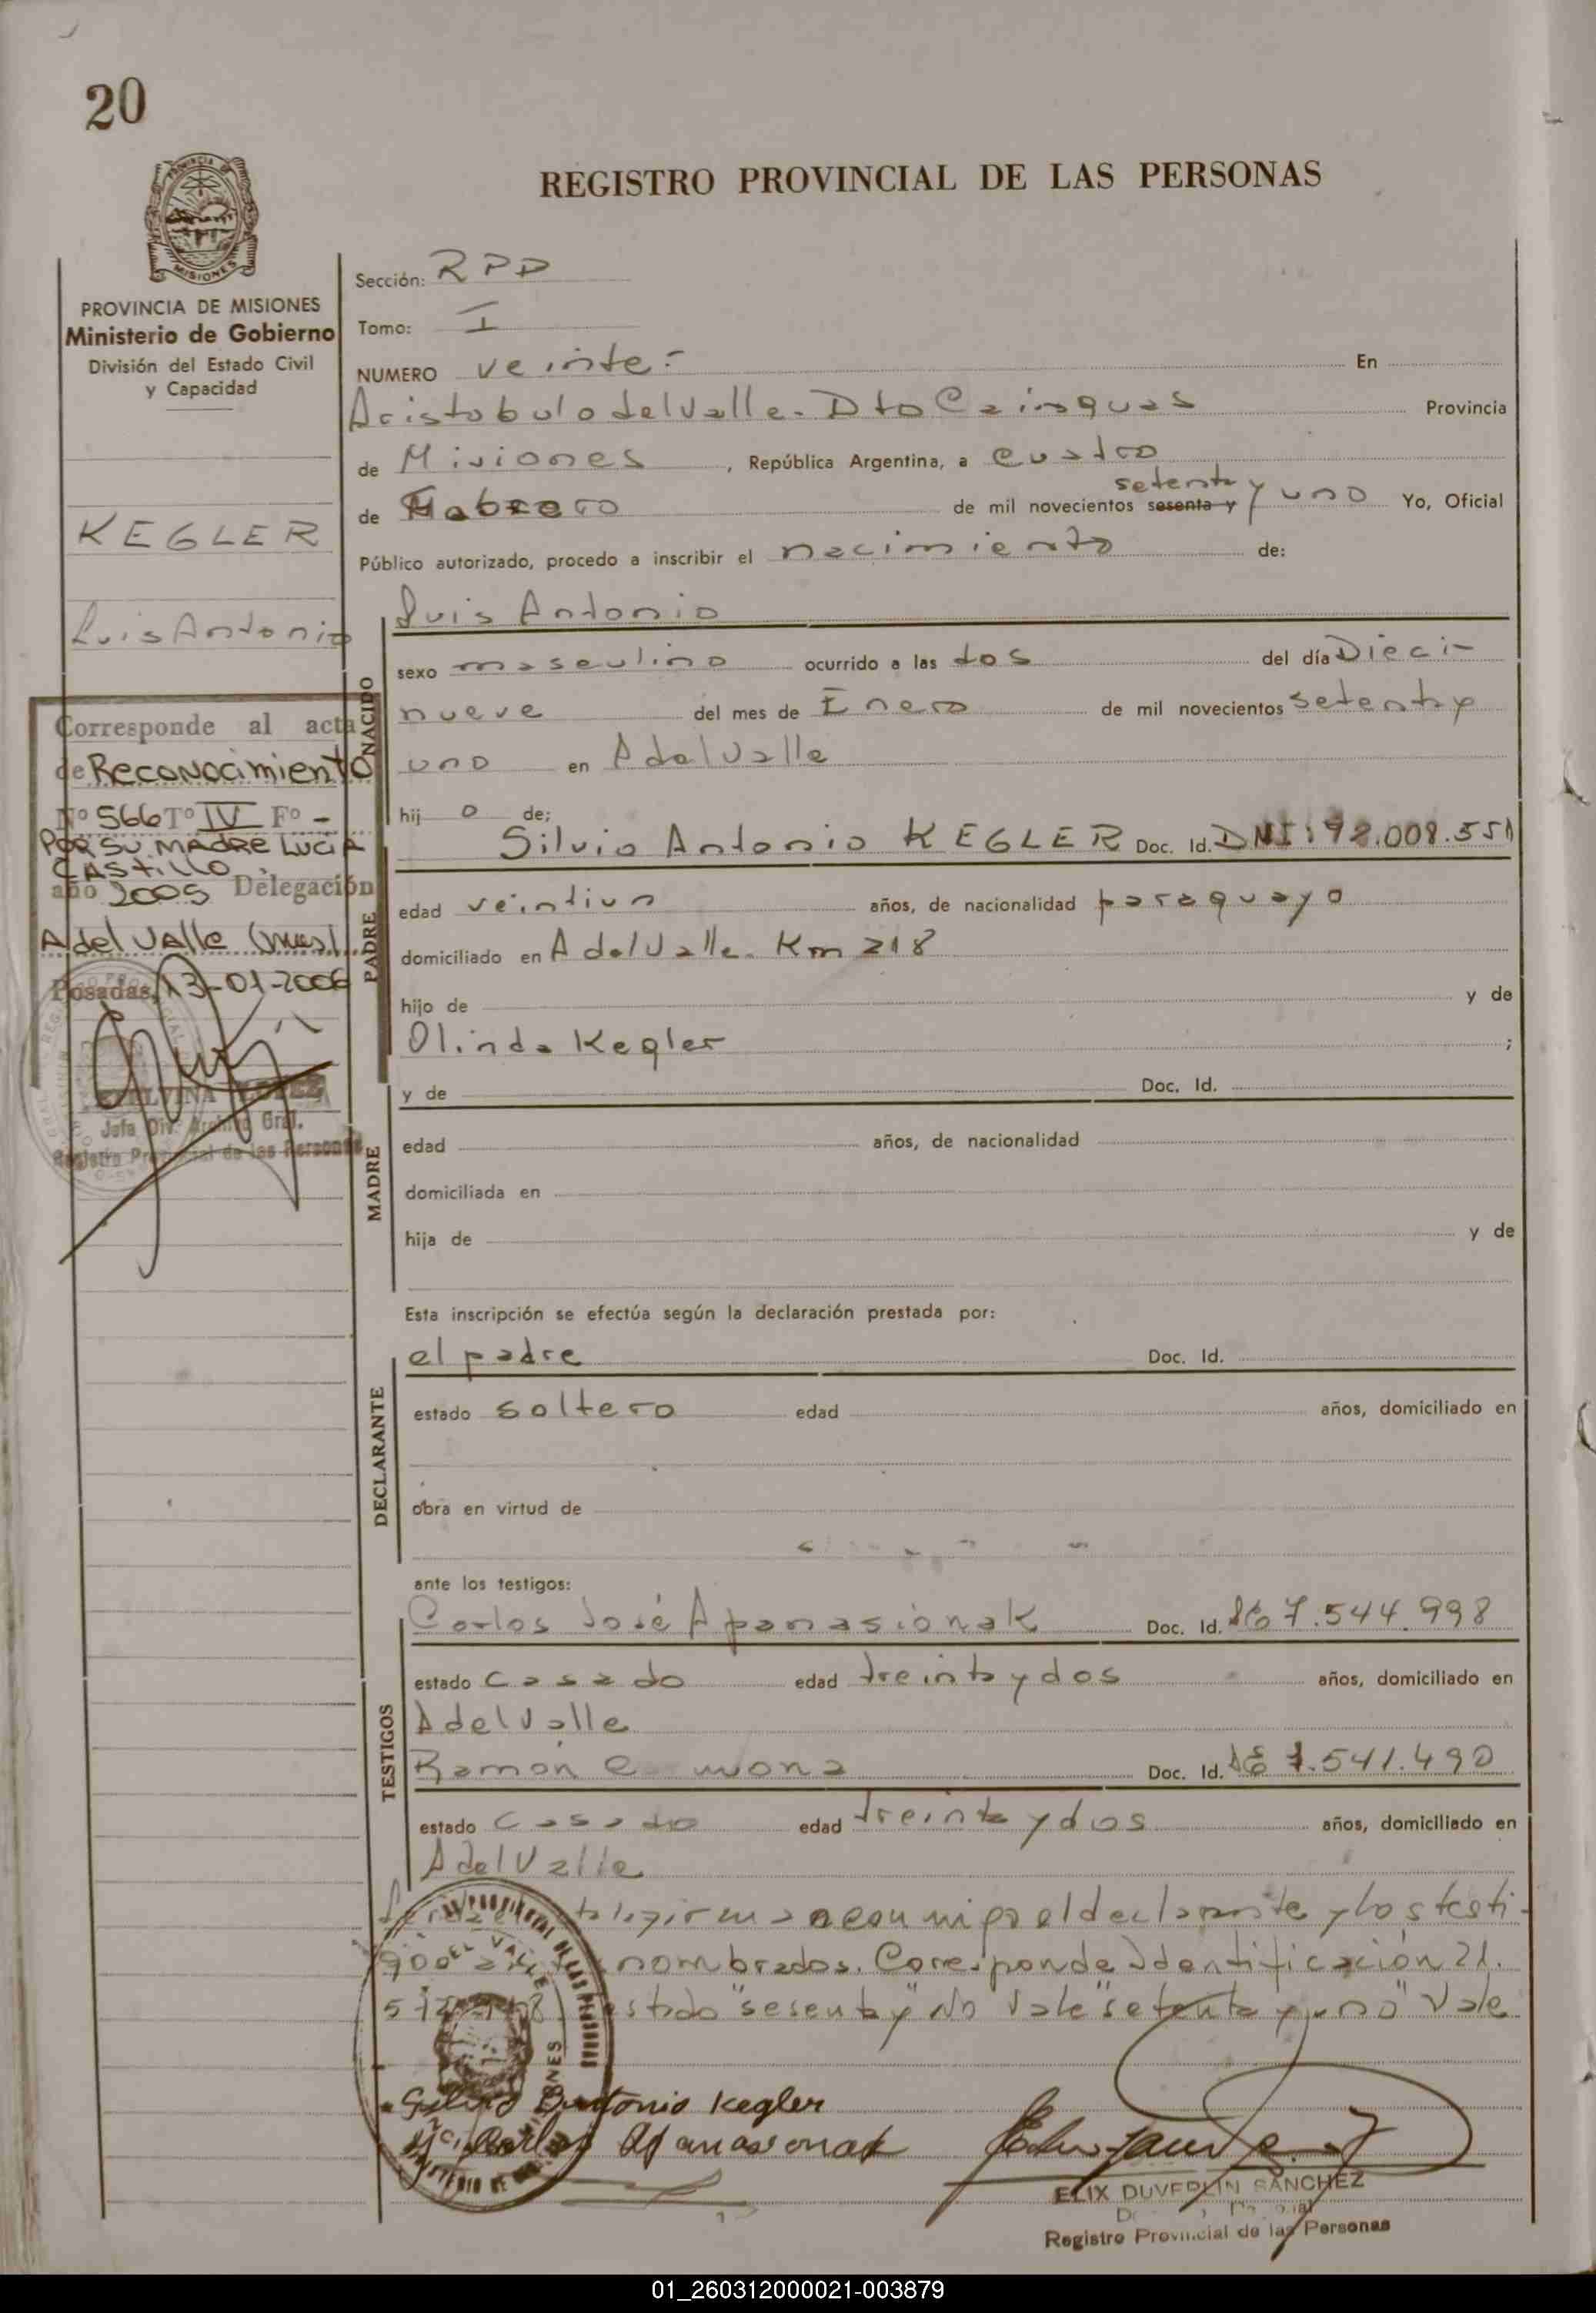 20
REGISTRO PROVINCIAL DE LAS PERSONAS
MISIONES
PROVINCIA DE MISIONES
Ministerio de Gobierno
División del Estado Civil
y Capacidad
KEGLER
Luis Antonio
Corresponde al acta
de Reconocimiento
Nº 566 Tº IV Fº -
POR SU MADRE LUCIA
CASTILLO
año 2005 Delegación
A del Valle (Mnes)
Posadas, 13-01-2006
Jefa Div. Archivo Gral.
Registro Provincial de las Personas
Sección: RPD
Tomo: I
NUMERO veinte.- En
Aristobulo del Valle. Dto Cainguas Provincia
de Misiones , República Argentina, a cuatro
setenta y
de Febrero de mil novecientos sesenta y uno Yo, Oficial
Público autorizado, procedo a inscribir el nacimiento de:
NACIDO
Luis Antonio
sexo masculino ocurrido a las dos del día Dieci-
nueve del mes de Enero de mil novecientos setenta y
uno en A del Valle
hij o de;
PADRE
Silvio Antonio KEGLER Doc. Id. DNI: 92.008.551
edad veintiun años, de nacionalidad paraguayo
domiciliado en A del Valle. Km 218
hijo de y de
Olinda Kegler ;
MADRE
y de Doc. Id.
edad años, de nacionalidad
domiciliada en
hija de y de
Esta inscripción se efectúa según la declaración prestada por:
DECLARANTE
el padre Doc. Id.
estado soltero edad años, domiciliado en
obra en virtud de
ante los testigos:
TESTIGOS
Carlos José Apanasionak Doc. Id. 7.544.998
estado casado edad treinta y dos años, domiciliado en
A del Valle
Ramón Doc. Id. 7.541.490
estado casado edad treinta y dos años, domiciliado en
A del Valle
firman conmigo el declarante y los testi-
gos nombrados. Coresponde Identificación 21.
"sesenta y" No Vale "setenta y uno" Vale
Silvio Antonio Kegler
Carlos Apanasionak
ELIX DUVERLIN SANCHEZ
Registro Provincial de las Personas
01_260312000021-003879